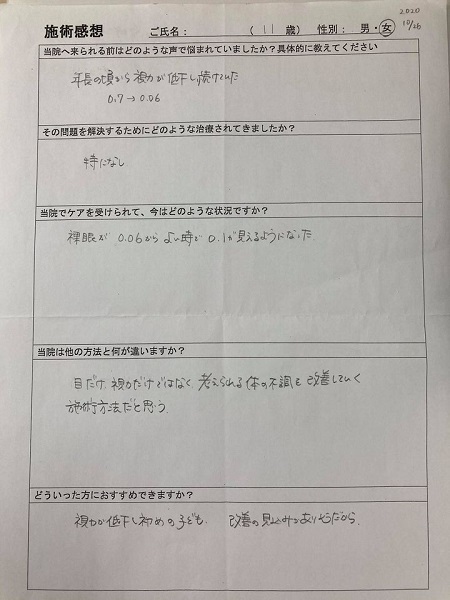 2020
10/26
施術感想 ご氏名： （ 11 歳） 性別： 男・女
当院へ来られる前はどのような声で悩まれていましたか？具体的に教えてください
年長の頃から視力が低下し続けていた
0.7→0.06
その問題を解決するためにどのような治療されてきましたか？
特になし
当院でケアを受けられて、今はどのような状況ですか？
裸眼が 0.06から よい時で 0.1が見えるようになった
当院は他の方法と何が違いますか？
目だけ、視力だけではなく、考えられる体の不調を改善していく
施術方法だと思う。
どういった方におすすめできますか？
視力が低下し初めの子ども。 改善の見込みがありそうだから。